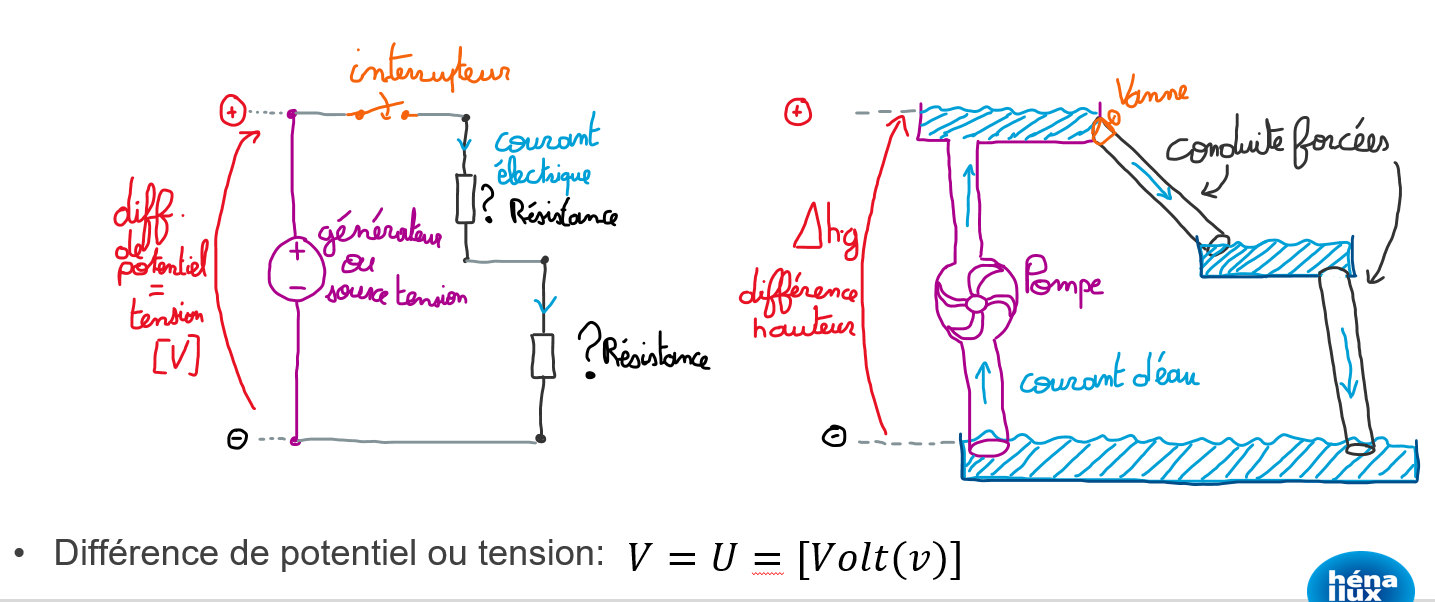 interrupteur
+
courant
électrique
? Résistance
diff.
de
potentiel
=
tension
[V]
+
générateur
ou
source tension
−
? Résistance
−
+
Vanne
conduite forcées
Δh.g
différence
hauteur
Pompe
courant d'éau
−
• Différence de potentiel ou tension: V = U = [Volt(v)]
héna
llux